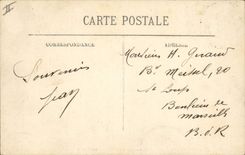 II
CARTE POSTALE
CORRESPONDANCE
ADRESSE
Souvenirs
Jean
Monsieur H. Giraud
Bd Michel, 20
St Loup
Banlieue de
Marseille
B. d. R